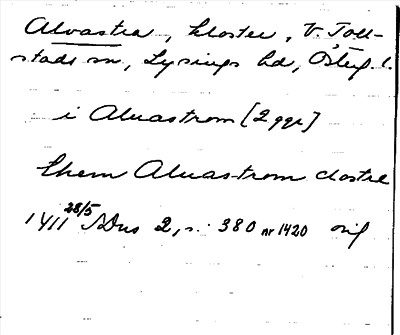 Alvastra, kloster, V. Toll-
stads sn, Lysings hd, Östg. l.
i Aluastrom [2 ggr]
them Aluastrom closter
1411 28/5 SDns 2, s. 380 nr 1420 orig